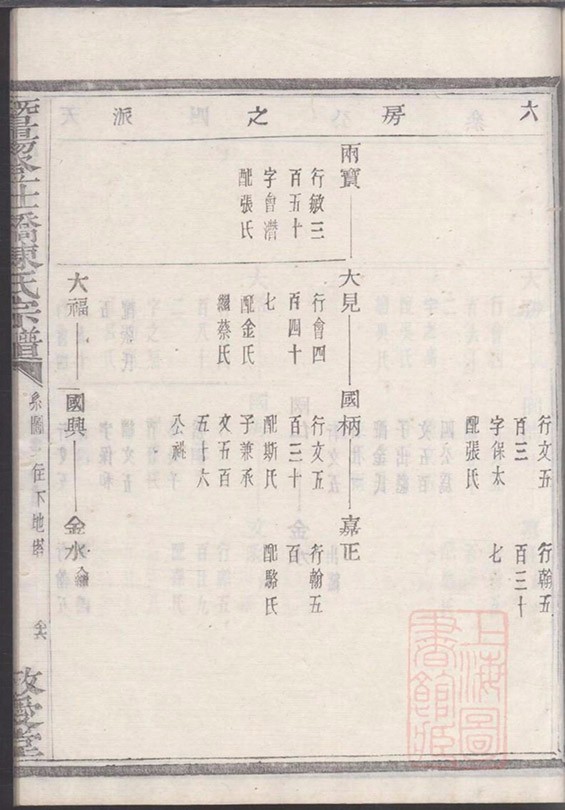 六房之派
行文五
百三
字保太
配張氏
行翰五
百三十
七
雨寶
行敏三
百五十
字會潛
配張氏
大見
行會四
百四十
七
配金氏
繼蔡氏
國柄
行文五
百三十
配斯氏
子兼承
文五百
五十六
公祧
嘉正
行翰五
百
配駱氏
大福
國興
金水
入繼
陳氏宗譜
系圖
住下地塔
上海圖
書館藏